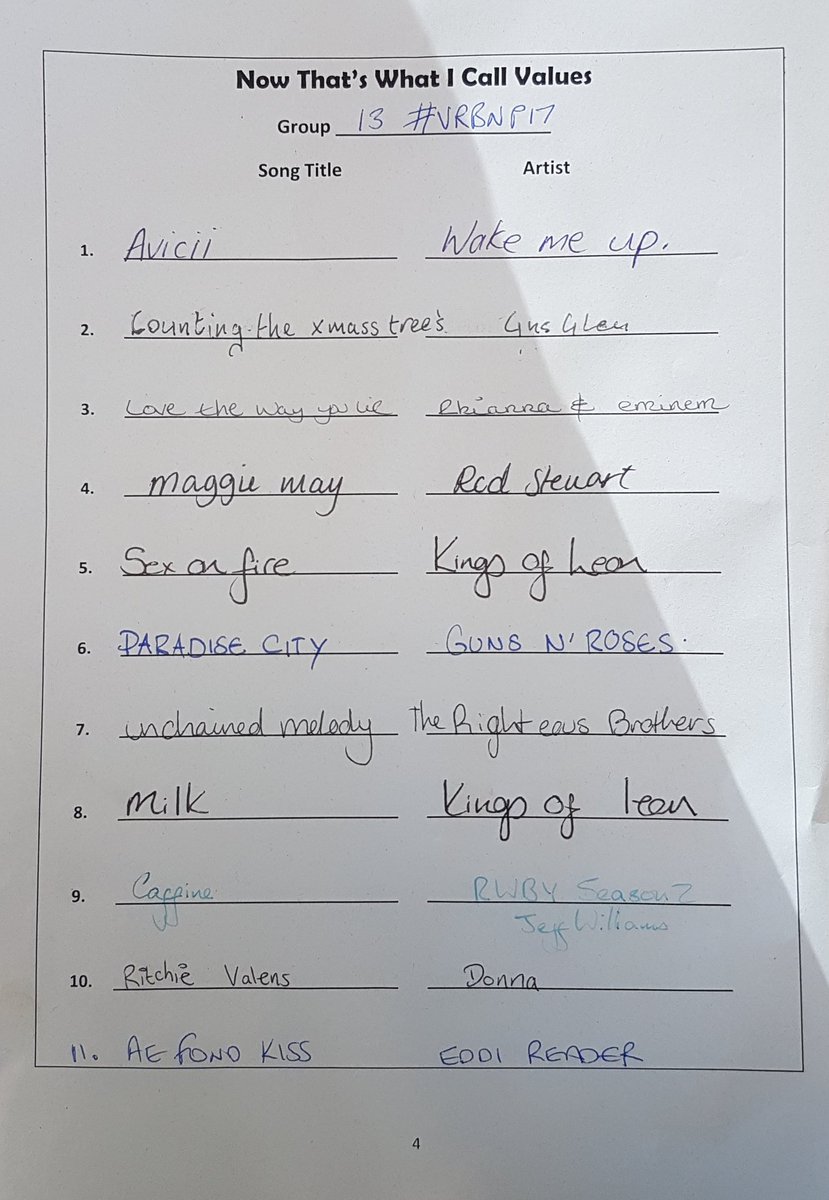 Now That's What I Call Values
Group 13 #VRBNP17
Song Title Artist
1. Avicii Wake me up.
2. Counting the xmass tree's Gus Glen
3. Love the way you lie Rhianna & eminem
4. maggie may Rod Stewart
5. Sex on fire Kings of Leon
6. PARADISE CITY GUNS N' ROSES.
7. unchained melody The Righteous Brothers
8. Milk Kings of leon
9. Caffine RWBY Season 2
Jeff Williams
10. Ritchie Valens Donna
11. AE FOND KISS EDDI READER
4